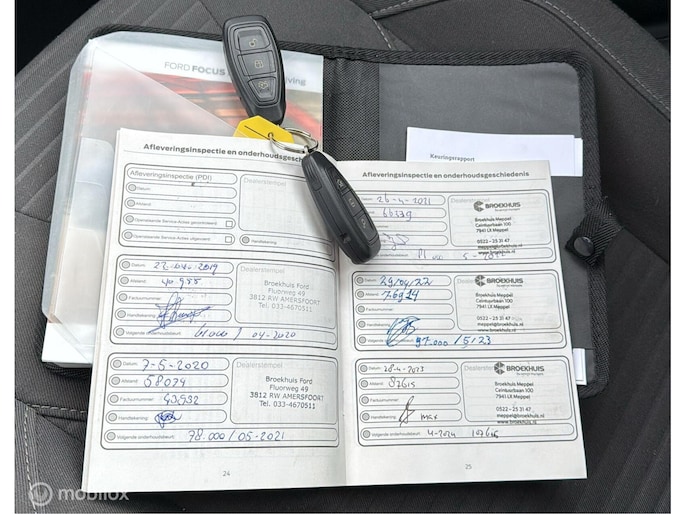 FORD FOCUS
Keuringsrapport
Afleveringsinspectie en onderhoudsgeschiedenis
Afleveringsinspectie (PDI)
Datum:
Afstand:
Openstaande Service-Acties gecontroleerd:
Openstaande Service-Acties uitgevoerd:
Dealerstempel
Handtekening:
Datum: 22-04-2019
Afstand: 40.955
Factuurnummer:
Handtekening:
Volgende onderhoudsbeurt: 61.000 / 04-2020
Dealerstempel
Broekhuis Ford
Fluorweg 49
3812 RW AMERSFOORT
Tel. 033-4670511
Datum: 7-5-2020
Afstand: 58074
Factuurnummer:
Handtekening:
Volgende onderhoudsbeurt: 78.000/05-2021
Dealerstempel
Broekhuis Ford
Fluorweg 49
3812 RW AMERSFOORT
Tel. 033-4670511
24
Afleveringsinspectie en onderhoudsgeschiedenis
26-4-2021
66339
BROEKHUIS
Broekhuis Meppel
Ceintuurbaan 100
7941 LX Meppel
0522 - 25 31 47
meppel@broekhuis.nl
www.broekhuis.nl
Datum: 29/04/22
Afstand: 76914
Factuurnummer:
Handtekening:
Volgende onderhoudsbeurt: 97.000/5/23
BROEKHUIS
Broekhuis Meppel
Ceintuurbaan 100
7941 LX Meppel
0522 - 25 31 47
meppel@broekhuis.nl
www.broekhuis.nl
Datum: 28-4-2023
Afstand: 87615
Factuurnummer:
Handtekening: max
Volgende onderhoudsbeurt: 4-2024 107615
BROEKHUIS
Broekhuis Meppel
Ceintuurbaan 100
7941 LX Meppel
0522 - 25 31 47
meppel@broekhuis.nl
www.broekhuis.nl
25
mobilox